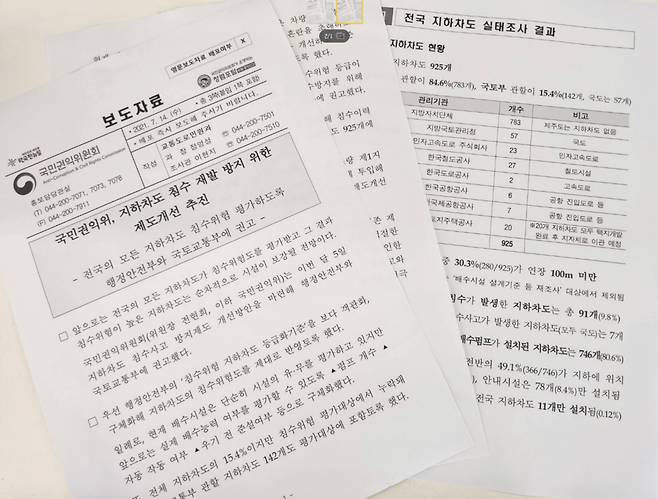 영문보도자료 배포여부 X
보도자료
• 2021. 7. 14. (수)
• 총 3쪽(붙임 1쪽 포함)
• 배포 즉시 보도해 주시기 바랍니다.
국민권익위원회
Anti-Corruption & Civil Rights Commission
홍보담당관실
(T) 044-200-7071, 7073, 7078
(F) 044-200-7911
작성
교통도로민원과
과 장 장영성 ☏ 044-200-7501
조사관 이현지 ☏ 044-200-7510
국민권익위, 지하차도 침수 재발 방지 위한
제도개선 추진
- 전국의 모든 지하차도 침수위험 평가하도록
행정안전부와 국토교통부에 권고 -
□ 앞으로는 전국의 모든 지하차도가 침수위험도를 평가받고 그 결과
침수위험이 높은 지하차도는 순차적으로 시설이 보강될 전망이다.
국민권익위원회(위원장 전현희, 이하 국민권익위)는 이번 달 5일
지하차도 침수사고 방지제도 개선방안을 마련해 행정안전부와
국토교통부에 권고했다.
□ 우선 행정안전부의 ‘침수위험 지하차도 등급화기준’을 보다 객관화,
구체화해 지하차도의 침수위험도를 제대로 반영토록 했다.
일례로, 현재 배수시설은 단순히 시설의 유·무를 평가하고 있지만
앞으로는 실제 배수능력 여부를 평가할 수 있도록 ▲펌프 개수 ▲
자동 작동 여부 ▲우기 전 준설여부 등으로 구체화했다.
전체 지하차도의 15.4%이지만 침수위험 평가대상에서 누락돼
국토교통부 관할 지하차도 142개도 평가대상에 포함토록 했다.
2/3
전국 지하차도 실태조사 결과
지하차도 현황
지하차도 925개
관할이 84.6%(783개), 국토부 관할이 15.4%(142개, 국도는 57개)
관리기관 개수 비고
지방자치단체 783 제주도는 지하차도 없음
지방국토관리청 57 국도
민자고속도로 주식회사 23 민자고속도로
한국철도공사 27 철도시설
한국도로공사 2 고속도로
한국공항공사 6 공항 진입도로 등
국제공항공사 7 공항 진입도로 등
토지주택공사 20 ※20개 지하차도 모두 택지개발
완료 후 지자체로 이관 예정
925
중 30.3%(280/925)가 연장 100m 미만
「배수시설 설계기준 등 재조사」 대상에서 제외됨
침수가 발생한 지하차도는 총 91개(9.8%)
침수사고가 발생한 지하차도(모두 국도)는 7개
배수펌프가 설치된 지하차도는 746개(80.6%)
49.1%(366/746)가 지하에 위치
안내시설은 78개(8.4%)만 설치됨
전국 지하차도 11개만 설치됨(0.12%)